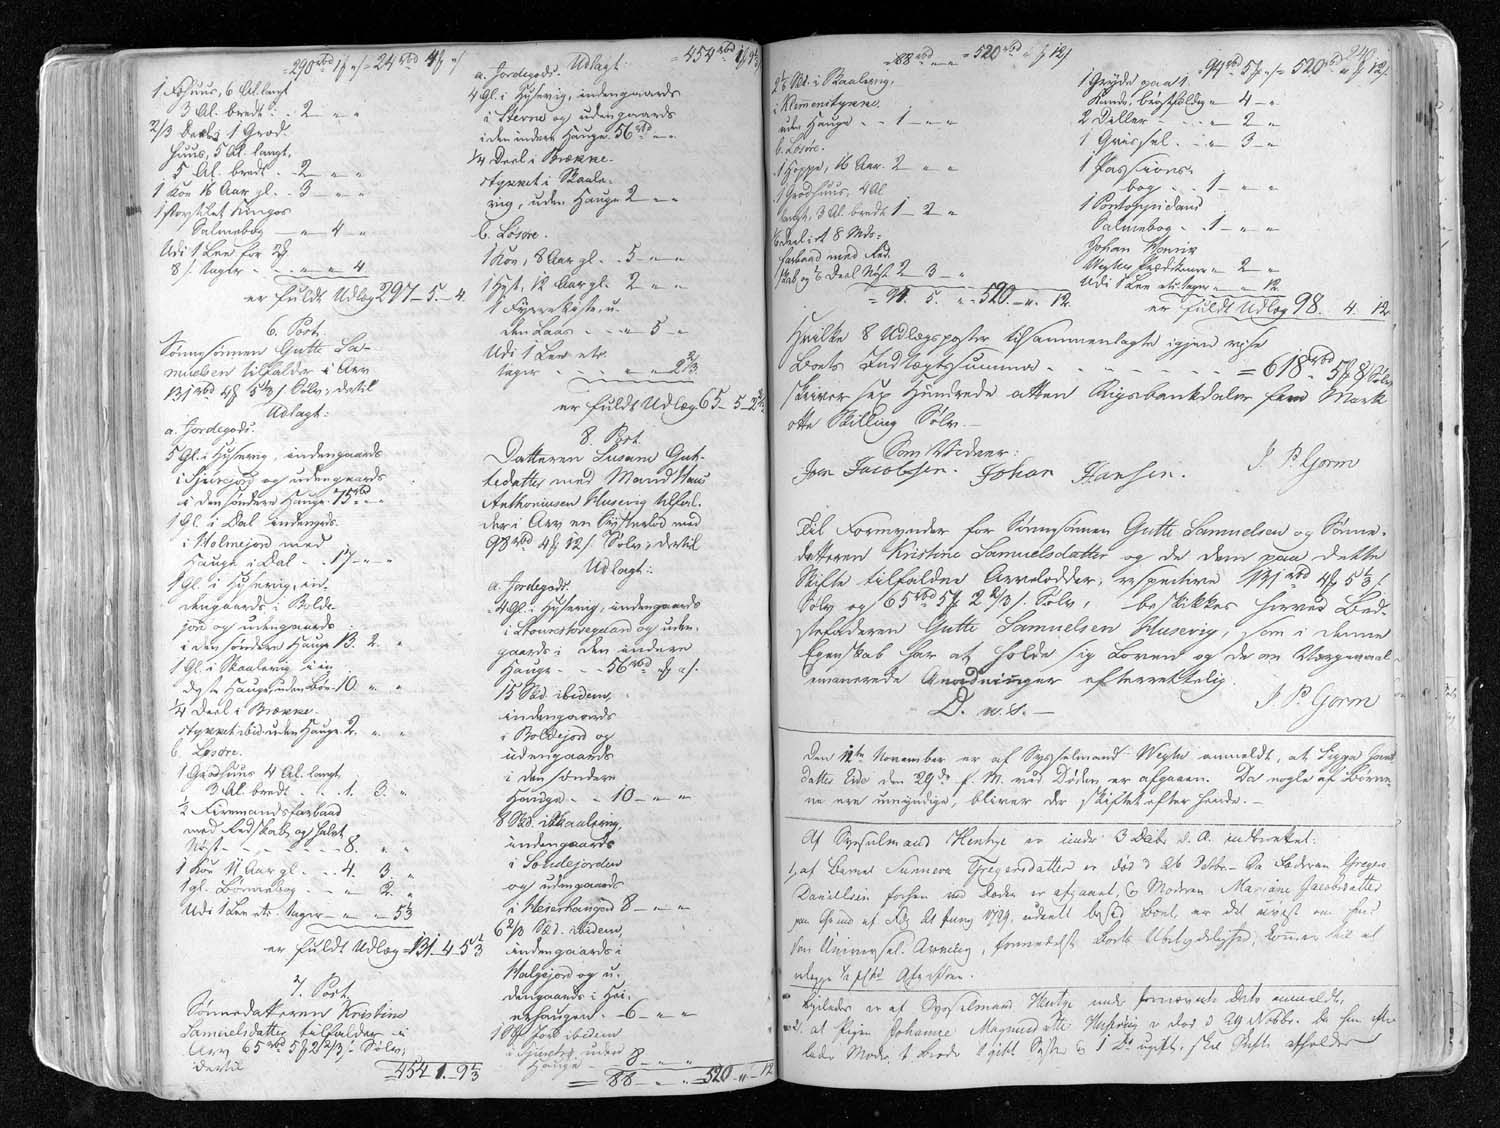 290 rbd 1 ß "/ = 24 rbd 4 ß "/
1 Fæhuus, 6 Al. langt
3 Al. bredt . . 2 " "
2/3 Deel i 1 Grod-
huus, 5 Al. langt,
5 Al. bredt . 2 " "
1 Koe 16 Aar gl. . 3 " "
1 Kingos
Salmebog — " 4 "
Udi 1 Lee for 2 ß
8 /. tager . . . " " 4
er fuldt Udlæg 297 - 5 - 4.
6. Post.
Sønnesønnen Gutte Sa-
muelsen tilfalder i Arv
131 rbd 4 ß 5 1/3 /. Sølv; dertil
Udlagt:
a. Jordegods.
5 Gl. i Husevig, indengaards
i og udengaards
i den søndere Hauge 75 rbd " "
1 Gl. i Dal indengds.
i Holmejord med
Hauge i Dal . . 17 - " "
1 Gl. i Husevig, in-
dengaards i Bolde-
jord og udengaards
i den søndere Hauge 13. 2. "
1 Gl. i Skaalevig i in
Hauge, uden Bøe 10. " "
1/4 Deel i Brække-
stykket ibid. uden Hauge 2. " "
b. Løsøre.
1 Grodhuus 4 Al. langt,
3 Al. bredt . . . 1. 3. "
1/2 Firemandsfarbaad
med Redskab og halvt
Nøst - - - - 8. " "
1 Koe 11 Aar gl. . . 4. 3. "
1 gl. Bønnebog - " 2. "
Udi 1 Lee etc. tager - " - " 5 1/3
er fuldt Udlæg = 131 - 4 - 5 1/3
7. Post.
Sønnedatteren Kristine
Samuelsdatter tilfalder i
Arv 65 rbd 5 ß 2 2/3 /. Sølv;
dertil
= 454 1. 9 1/3
= 454 rbd 1 ß 9 1/3 /
a. Jordegods. Udlagt:
4 Gl. i Husevig, indengaards
i og udengaards
i den indere Hauge 56 rbd " "
1/4 Deel i Brække-
stykket i Skaale-
vig, uden Hauge 2 " "
b. Løsøre.
1 Koe, 8 Aar gl. . . 5 - " "
1 Hest, 12 Aar gl. 2 " "
1 Fyrrekiste u-
den Laas . . . " 5 "
Udi 1 Lee etc.
tager - - " " 2 2/3
er fuldt Udlæg 65 - 5 - 2 2/3
8. Post.
Datteren Susane Gut-
tesdatter med Mand Hans
Anthoniusen Husevig tilfal-
der i Arv en Søsterlod med
98 rbd 4 ß 12 /. Sølv; dertil
Udlagt:
a. Jordegods.
4 Gl. i Husevig, indengaards
i og uden-
gaards i den indere
Hauge . . 56 rbd " ß " /.
15 Skd. ibidem,
indengaards
i Boldejord og
udengaards
i den søndere
Hauge . . 10 - " "
8 Skd. i Skaalevig,
indengaards
i Søndejorden
og udengaards
i 8 - " "
6 2/3 Skd. ibidem,
indengaards i
og u-
dengaards i
- 6 - " "
ibidem
i uden
Hauge . 8 - " "
= 88 " " = 520 - " - 12
= 88 rbd " " = 520 rbd " ß 12 /
2 1/2 Skd. i Skaalevig,
i Klemmenstykke
uden Hauge . . 1 - " "
b. Løsøre.
1 Hoppe, 16 Aar. 2 " "
1 Grodhuus, 4 Al.
langt, 3 Al. bredt 1 - 2 "
1/6 Deel i et 8 Mds-
farbaad med Red-
skab og 1/6 Deel Nøst 2 3 "
= 94. 5. " = 520 - ". 12.
249
= 94 rbd 5 ß "/ = 520 rbd " ß 12 /.
1 Gryde paa 1
Kande, brøstholdig " 4 - "
2 Deller . . . " 2 - "
1 Grissel . . . " 3 - "
1 Passions-
bog . . 1 - " "
1 Pontoppidans
Salmebog . . 1 - " "
Johan
" 2 - "
Udi 1 Lee etc. tager - " " 12.
er fuldt Udlæg 98. 4. 12.
Hvilke 8 Udlægsposter tilsammenlagte igjen vise
Boets Indtægtssumma - - - - - = 618 rbd 5 ß 8 / Sølv
skriver sex Hundrede atten Rigsbankdaler fem Mark
otte Skilling Sølv. -
Som Vidner: J. P. Gorm
Joen Jacobsen. Johan Hansen.
Til Formynder for Sønnesønnen Gutte Samuelsen og Sønne-
datteren Kristine Samuelsdatter og de dem paa dette
Skifte tilfaldne Arvelodder, respective 131 rbd 4 ß 5 1/3 /.
Sølv og 65 rbd 5 ß 2 2/3 /. Sølv, beskikkes herved Bed-
stefaderen Gutte Samuelsen Husevig, som i denne
Egenskab har at holde sig Loven og de om Værgemaal
emanerede Anordninger efterrettelig.
D. u. s. - J. P. Gorm
Den 12te November er af Sysselmand Weyhe anmeldt, at Sigga Joens-
datter Eide den 29de f. M. ved Døden er afgaaen. Da nogle af Børne-
ne ere umyndige, bliver der skiftet efter hende. -
Af Sysselmand Hentze er under 3 Decb. d. A. indberettet:
1, at Barnet Sunneva Gregersdatter er død d. 26 Octbr. Da Faderen Gregers
Danielsen forhen ved Døden er afgaaet, og Moderen Mariane Jacobsdatter
paa Grund af Pl. 21 Juny 1729, uskiftet besad Boet, er det uvist om hun
som Universal-Arving, formedelst Boets Ubetydelighed, kommer til at
erlægge 1/2 pCt. Afgiften.
Ligeledes er af Sysselmand Hentze under fornævnte Dato anmeldt,
2, at Pigen Johanne Magnusdatter er død d. 29 Novbr. Da hun efter-
lader Moder, 1 Broder 1 gift Søster og 1 Do. ugift, skal Skifte afholdes